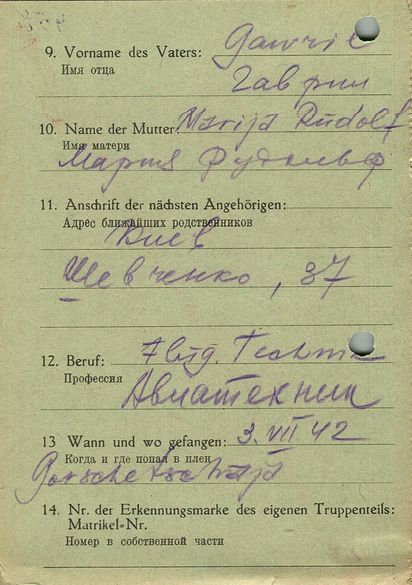 9. Vorname des Vaters: Gawril
Имя отца Гаврил
10. Name der Mutter: Marija Rudolf
Имя матери
Мария Рудольф
11. Anschrift der nächsten Angehörigen:
Адрес ближайших родственников
Киев
Шевченко, 37
12. Beruf: Flug. Techni
Профессия Авиатехник
13 Wann und wo gefangen: 3. VII 42
Когда и где попал в плен
14. Nr. der Erkennungsmarke des eigenen Truppenteils:
Matrikel-Nr.
Номер в собственной части